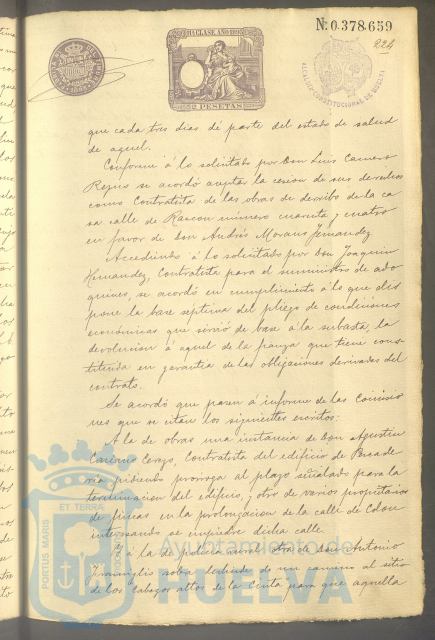 Nº 0.378.659
224
11ª CLASE AÑO 1895
PESETAS
ALCALDIA CONSTITUCIONAL DE HUELVA
que cada tres dias dé parte del estado de salud
de aquel.
Conforme á lo solicitado por Don Luis
se acordó aceptar la cesion de sus derechos
como Contratista de las obras de derribo de la ca
sa calle de Rascon número cuarenta y cuatro
en favor de Don Andrés Morano Fernandez
Accediendo á lo solicitado por Don Joaquin
Hernandez, Contratista para el suministro de ado
quines, se acordó en cumplimiento á lo que dis
pone la base septima del pliego de condiciones
económicas que sirvió de base á la subasta, la
devolucion á aquel de la fianza que tiene cons
tituida en garantia de las obligaciones derivadas del
contrato.
Se acordó que pasen á informe de las Comisio
nes que se citan los siguientes escritos:
A la de obras una instancia de Don Agustin
Cerezo, Contratista del edificio de
pidiendo prorroga al plazo señalado para la
terminacion del edificio, y otro de varios propietarios
de fincas en la prolongacion de la calle de Colon
interesando se empiedre dicha calle.
Y á la de policia rural otra de Don Antonio
sobre deslinde de un camino al sitio
de los Cabezos altos de la Cinta para que aquella
PORTUS MARIS ET TERRAE CUSTODIA
Ayuntamiento de
HUELVA